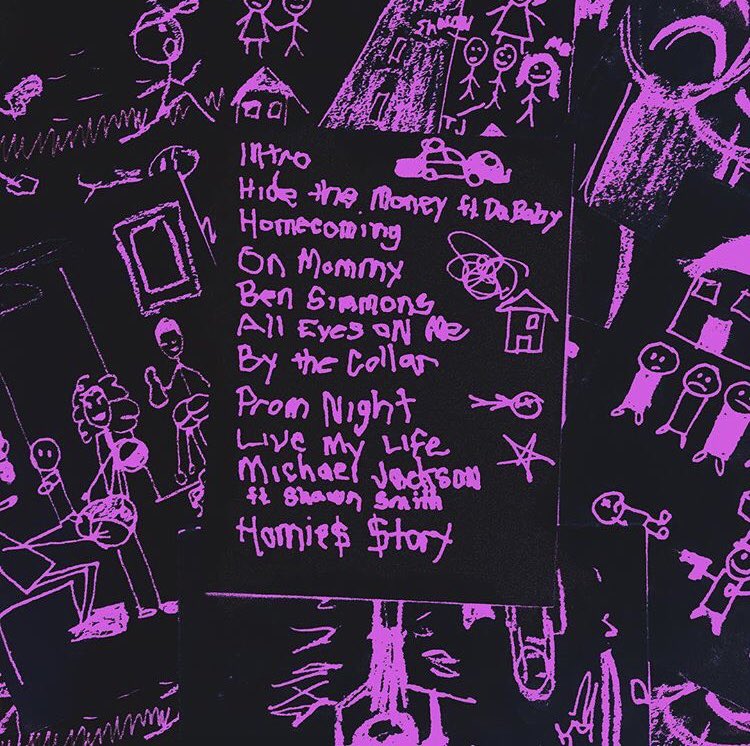 Shawn
Me
TJ
Intro
Hide the Money ft DaBaby
Homecoming
On Mommy
Ben Simmons
All Eyes oN Me
By the Collar
Prom Night
Live My Life
Michael Jackson
ft Shawn Smith
Homie$ $tory